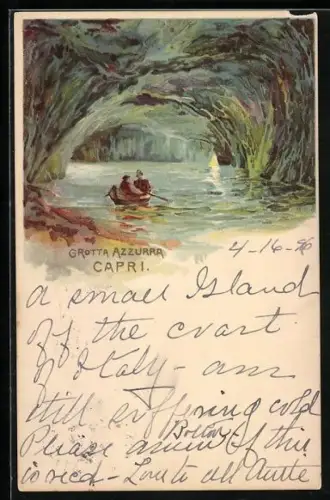 GROTTA AZZURRA
CAPRI.
4-16-
a small Island
of the coast
of Italy - am
still suffering cold
Please Boston of this
is rec'd - Love to all